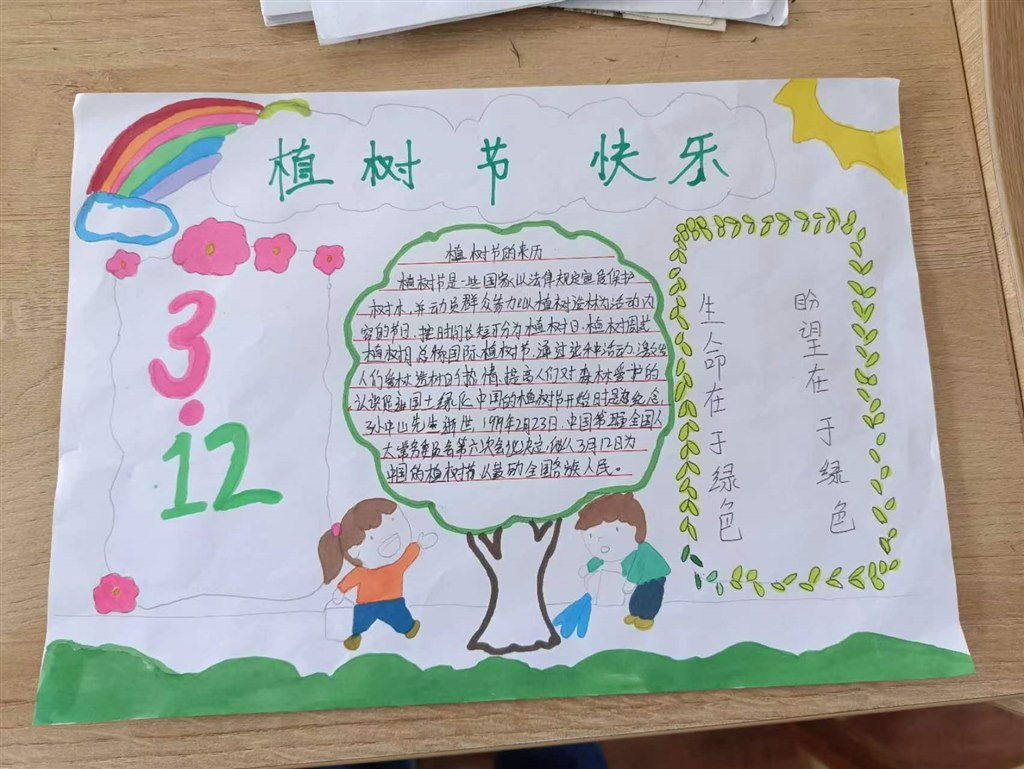 植树节 快乐
3.12
植树节的来历
植树节是一些国家以法律规定宣传保护
树木,并动员群众参加以植树造林为活动内
容的节日,按时间长短可分为植树日、植树周或
植树月,总称国际植树节。通过这种活动,激发
人们爱树造林的热情、提高人们对森林爱护的
认识促进国土绿化,中国的植树节开始时是为纪念
孙中山先生逝世,1979年2月23日,中国第五届全国人
大常务委员会第六次会议决定,仍以3月12日为
中国的植树节以鼓励全国各族人民。
盼望在于绿色
生命在于绿色